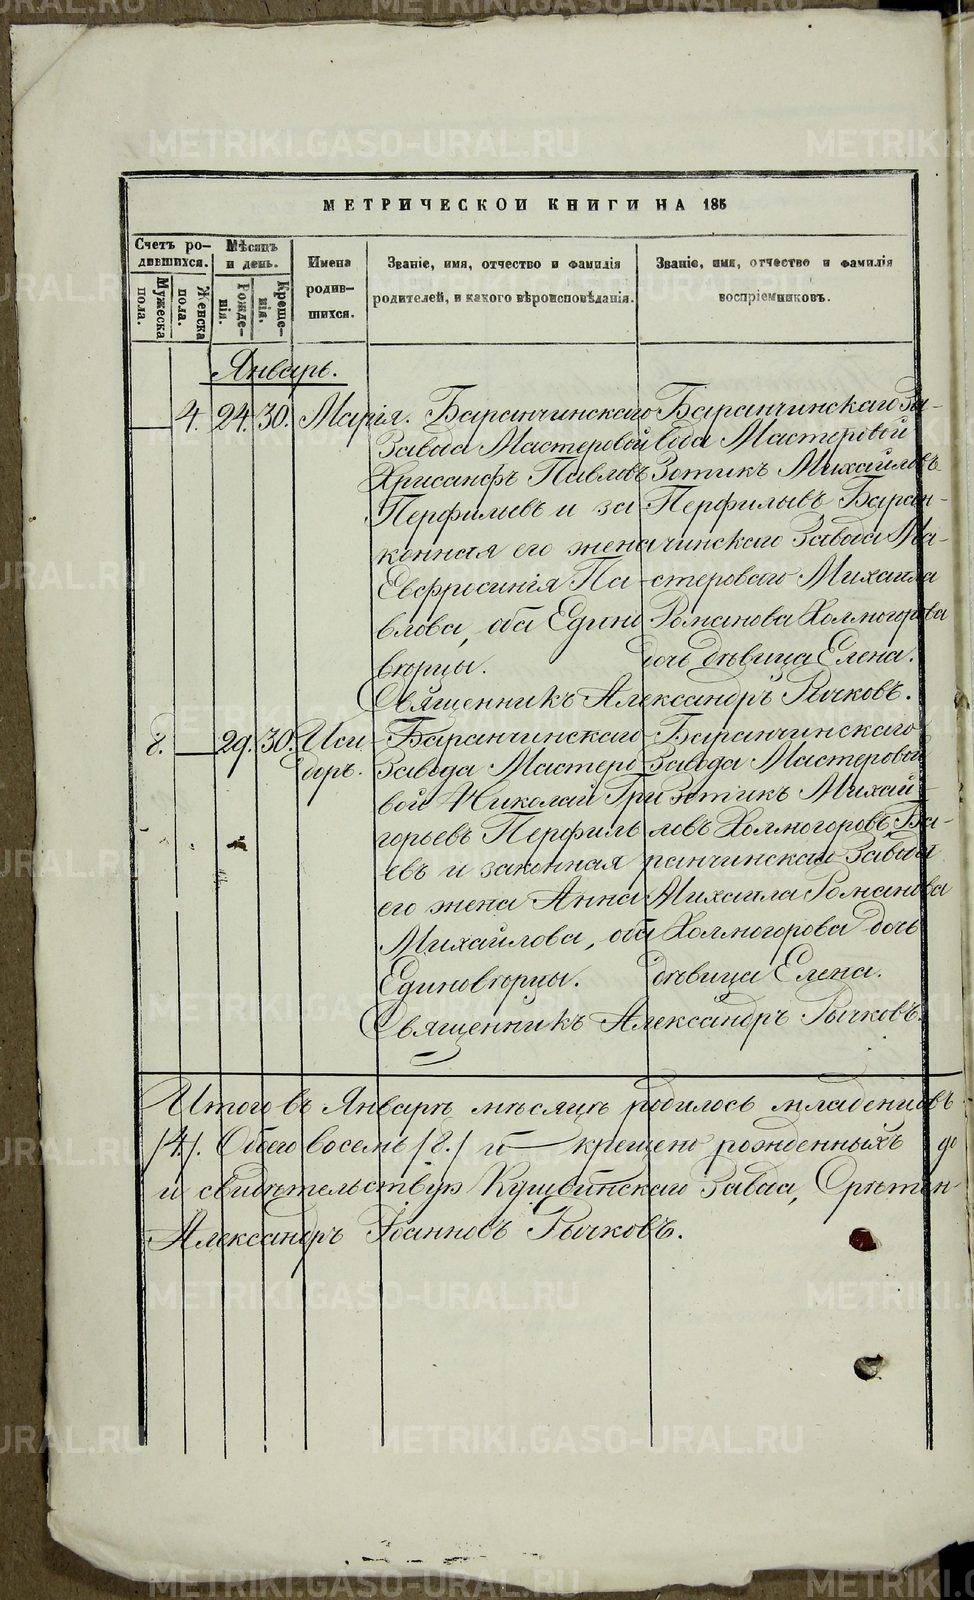 МЕТРИЧЕСКОЙ КНИГИ НА 185
Счетъ родившихся.
Мужеска пола.
Женска пола.
Мѣсяцъ и день.
Рожденія.
Крещенія.
Имена родившихся.
Званіе, имя, отчество и фамилія
родителей, и какого вѣроисповѣданія.
Званіе, имя, отчество и фамилія
воспріемниковъ.
Январь.
4. 24. 30. Марія.
Баранчинскаго
Завода Мастеровой
Хрисанфъ Павловъ
Перфильевъ и за
конная его жена
Евфросинія Па-
влова, оба Едино
вѣрцы.
Баранчинскаго За-
вода Мастеровой
Зотикъ Михайловъ
Перфильевъ Баран-
чинскаго Завода Ма-
стероваго Михаила
Романова Холмогорова
дочь дѣвица Елена.
Священникъ Александръ Рычковъ.
8. 29. 30. Иси
доръ.
Баранчинскаго
Завода Мастеро
вой Николай Гри
горьевъ Перфиль
евъ и законная
его жена Анна
Михайлова, оба
Единовѣрцы.
Баранчинскаго
Завода Мастеровой
Зотикъ Михай-
ловъ Холмогоровъ Ба-
ранчинскаго Завода
Михаила Романова
Холмогорова дочь
дѣвица Елена.
Священникъ Александръ Рычковъ.
Итого въ Январѣ мѣсяцѣ родилось младенцовъ
/4/. Обего восемь /8./ и крещено рожденныхъ до
и свидѣтельствую Кушвинскаго Завода, Срѣтен-
Александръ Іоанновъ Рычковъ.
METRIKI.GASO-URAL.RU